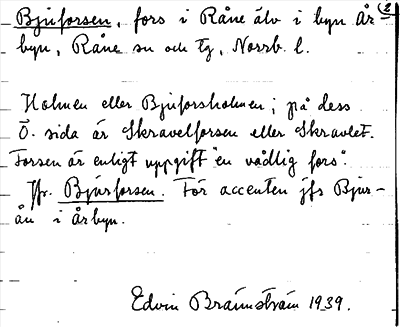 Bjuforsen, fors i Råne älv i byn År- 2
byn, Råne sn och tg, Norrb. l.
Holmen eller Bjuforsholmen; på dess
Ö. sida är Skravelforsen eller Skravlet.
Forsen är enligt uppgift "en vådlig fors".
Jfr. Bjursforsen. För accenten jfs Bjur-
ån i Årbyn.
Edvin Brännström 1939.